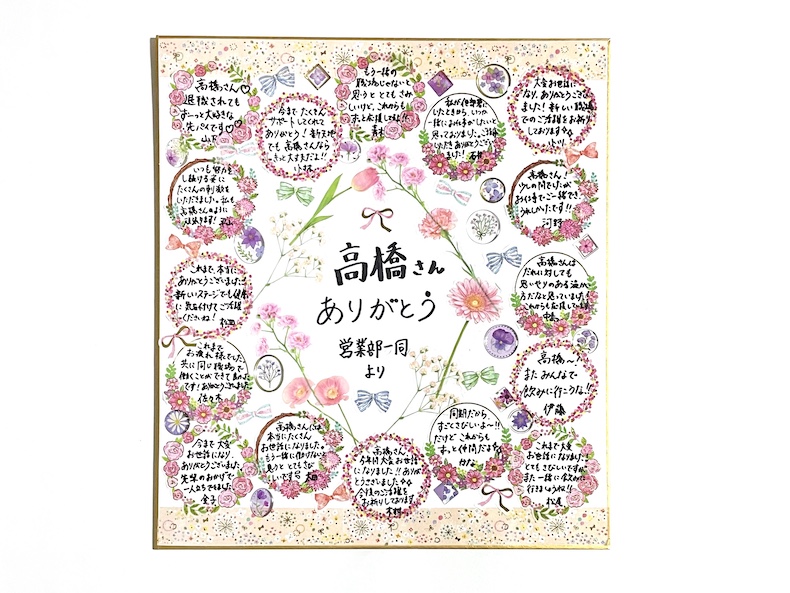 高橋さん
ありがとう
営業部一同
より
高橋さん♡
退職されても
ずーっと大好きな
先パイです♡♡
山下
今まで たくさん
サポートしてくれて
ありがとう！新天地
でも 高橋さんなら
大丈夫だよ！！
小林
もう一緒の
職場じゃないと
思うと とてもさみ
しいけど、これからも
ずっと応援してるね!!
青木
私が他部署に
いたときから、いつか
一緒にお仕事がしたいと
思っておりました。ご指導
いただきありがとうござい
ました！ 石井
大変お世話に
なり、ありがとうござい
ました！新しい職場
でのご活躍をお祈り
しております☆
小川
いつも努力を
し続ける姿に
たくさんの刺激を
いただきました。私も
高橋さんのように
頑張ります！
高橋さん！
少しの間でしたが
お仕事でご一緒でき
うれしかったです!!
河野
これまで、本当に
ありがとうございました
新しいステージでも健康
に気を付けてご活躍
くださいね！
松田
高橋さんは
だれに対しても
思いやりのある温かい
方だなと思っていました！
これからも応援しています
中島
これまで
お疲れ様でした
共に同じ職場で
働くことができて良かった
です！ありがとうございました
佐々木
高橋〜！
またみんなで
飲みに行こうな!!
伊藤
今まで大変
お世話になり、
ありがとうございました
先輩のおかげで
一人立ちできました
金子
高橋さんには
本当にたくさん
お世話になりました。
もう一緒に働けないと
思うと とてもさび
しいです
高橋さん
今年何大変お世話
になりました!!ありが
とうございました☆
今後のご活躍を
お祈りしております。
木村
同期だから
すごくさびしいよ〜!!
だけど これからも
ずっと仲間だよ☆
はな
これまで大変
お世話になりました
とてもさびしいですが
また一緒に飲みに
行きましょうね!!